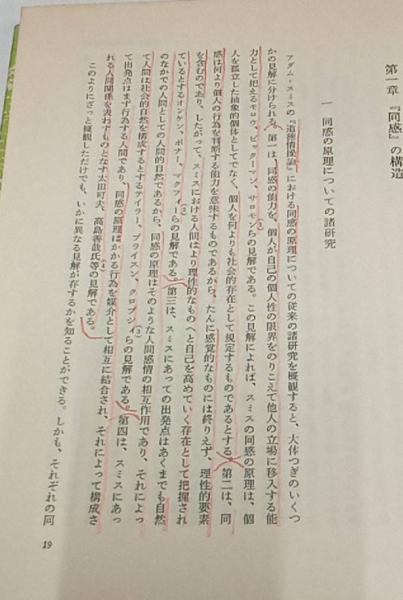 第一章 『同感』の構造
一 同感の原理についての諸研究
アダム・スミスの『道徳情操論』における同感の原理についての従来の諸研究を概観すると、大体つぎのいくつ
かの見解に分けられる。第一は、同感の能力を、個人が自己の個人性の限界をのりこえて他人の立場に移入する能
力として把えるモロウ、ビッターマン、サロモンらの見解である。この見解によれば、スミスの同感の原理は、個
人を孤立した抽象的個体としてでなく、個人を何よりも社会的存在として規定するものであるとする。第二は、同
感は何より個人の行為を判断する能力を意味するものであるから、たんに感覚的なものには終りえず、理性的要素
を含むのであり、したがって、スミスにおける人間はより理性的なものへと自己を高めていく存在として把握され
ているとするオンケン、ボナー、マクフィーらの見解である。第三は、スミスにあっての出発点はあくまでも自然
のなかでの人間としての人間的自然であるから、同感の原理はそのような人間感情の相互作用であり、それによっ
て人間は社会的自然を構成するとするテイラー、プライスン、クロプシイらの見解である。第四は、スミスにあっ
て出発点はまず行為する人間であり、同感の原理はかかる行為を媒介として相互に結合され、それによって構成さ
れる人間関係を表わすものとなす太田可夫、高島善哉氏等の見解である。
このようにざっと概観しただけでも、いかに異なる見解が存するかを知ることができる。しかも、それぞれの同
19